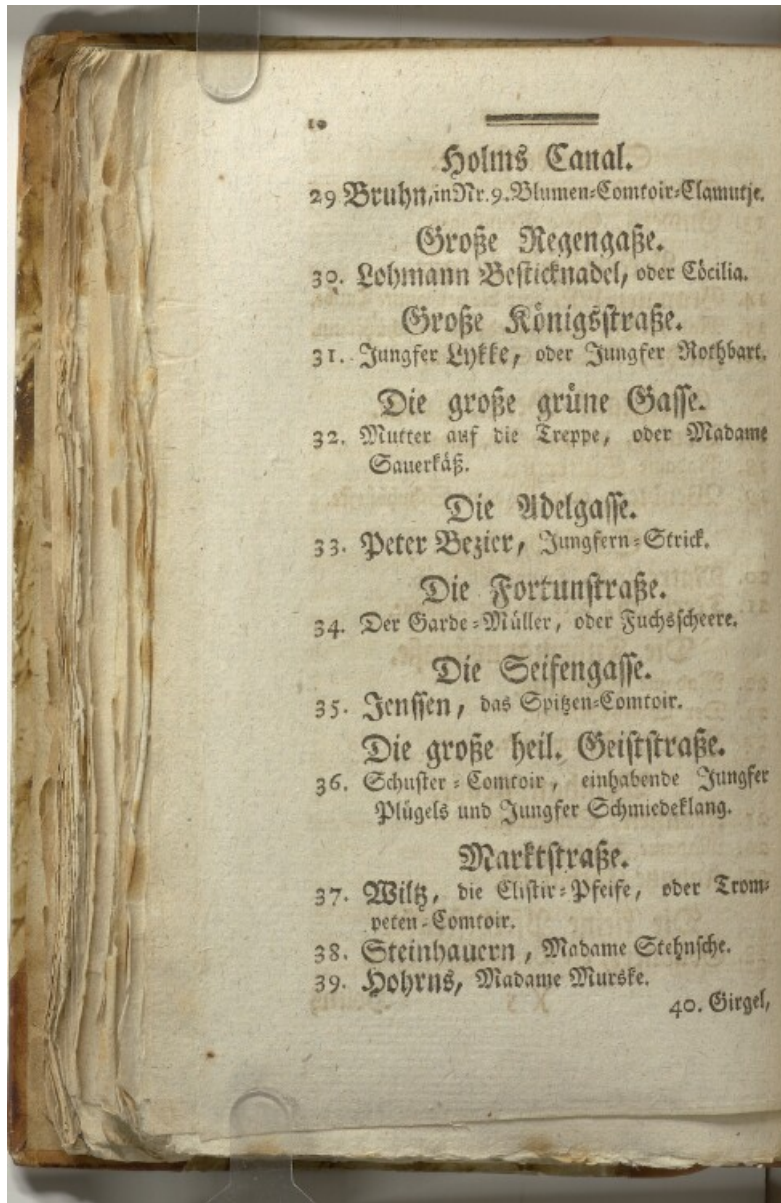 10
Holms Canal.
29 Bruhn, in Nr. 9. Blumen-Comtoir-Clamutje.
Große Regengaße.
30. Lohmann Besticknadel, oder Cöcilia.
Große Königsstraße.
31. Jungfer Lykke, oder Jungfer Rothbart.
Die große grüne Gasse.
32. Mutter auf die Treppe, oder Madame
Sauerkäß.
Die Adelgasse.
33. Peter Bezier, Jungfern-Strick.
Die Fortunstraße.
34. Der Garde-Müller, oder Fuchsscheere.
Die Seifengasse.
35. Jenssen, das Spitzen-Comtoir.
Die große heil. Geiststraße.
36. Schuster-Comtoir, einhabende Jungfer
Plügels und Jungfer Schmiedeklang.
Marktstraße.
37. Wiltz, die Clistir-Pfeife, oder Trom-
peten-Comtoir.
38. Steinhauern, Madame Stehnsche.
39. Hohrns, Madame Murske.
40. Girgel,